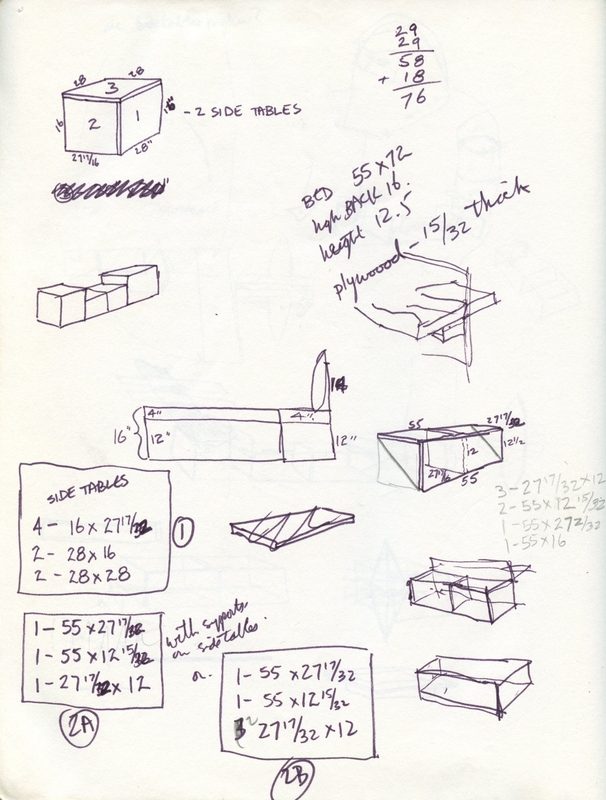 29
29
58
+ 18
76
28
28
3
16
2
1
16"
27 17/16
28"
- 2 SIDE TABLES
BED 55 x 72
high BACK 16
height 12.5
plywoood - 15/32 thick
4"
4"
16"
12"
12"
55
27 17/32
12
12 1/2
55
3 - 27 17/32 x 12
2 - 55 x 12 15/32
1 - 55 x 27 2/32
1 - 55 x 16
SIDE TABLES
4 - 16 x 27 17/32
2 - 28 x 16
2 - 28 x 28
1
1 - 55 x 27 17/32
1 - 55 x 12 15/32
1 - 27 17/32 x 12
2A
with supports
on side tables.
or
1 - 55 x 27 17/32
1 - 55 x 12 15/32
27 17/32 x 12
2B